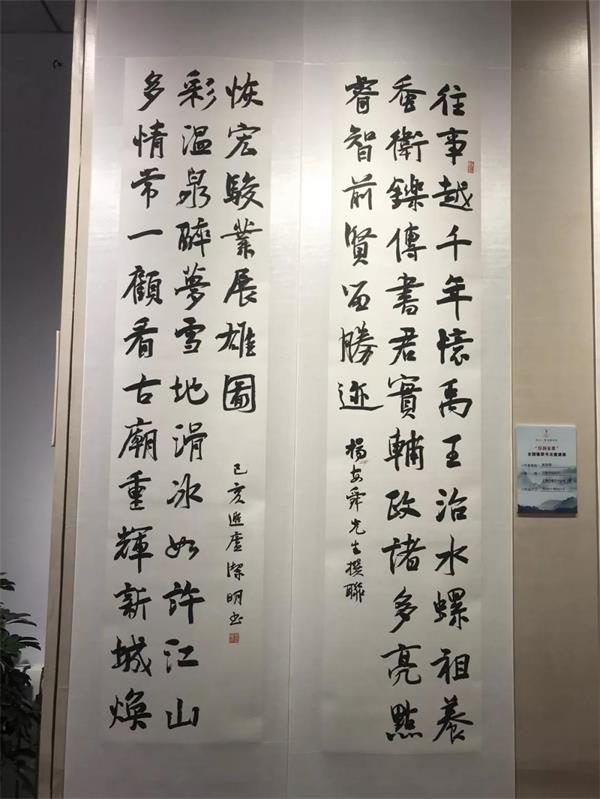 往事越千年懷禹王治水螺祖養
蚕衛鑠傳書君實輔政諸多亮點
睿智前賢留勝迹
楊安舜先生撰聯
多情常一顧看古廟重輝新城煥
彩温泉醉夢雪地滑冰如許江山
恢宏駿業展雄圖
己亥廬潔明书
全国楹联书法邀请展